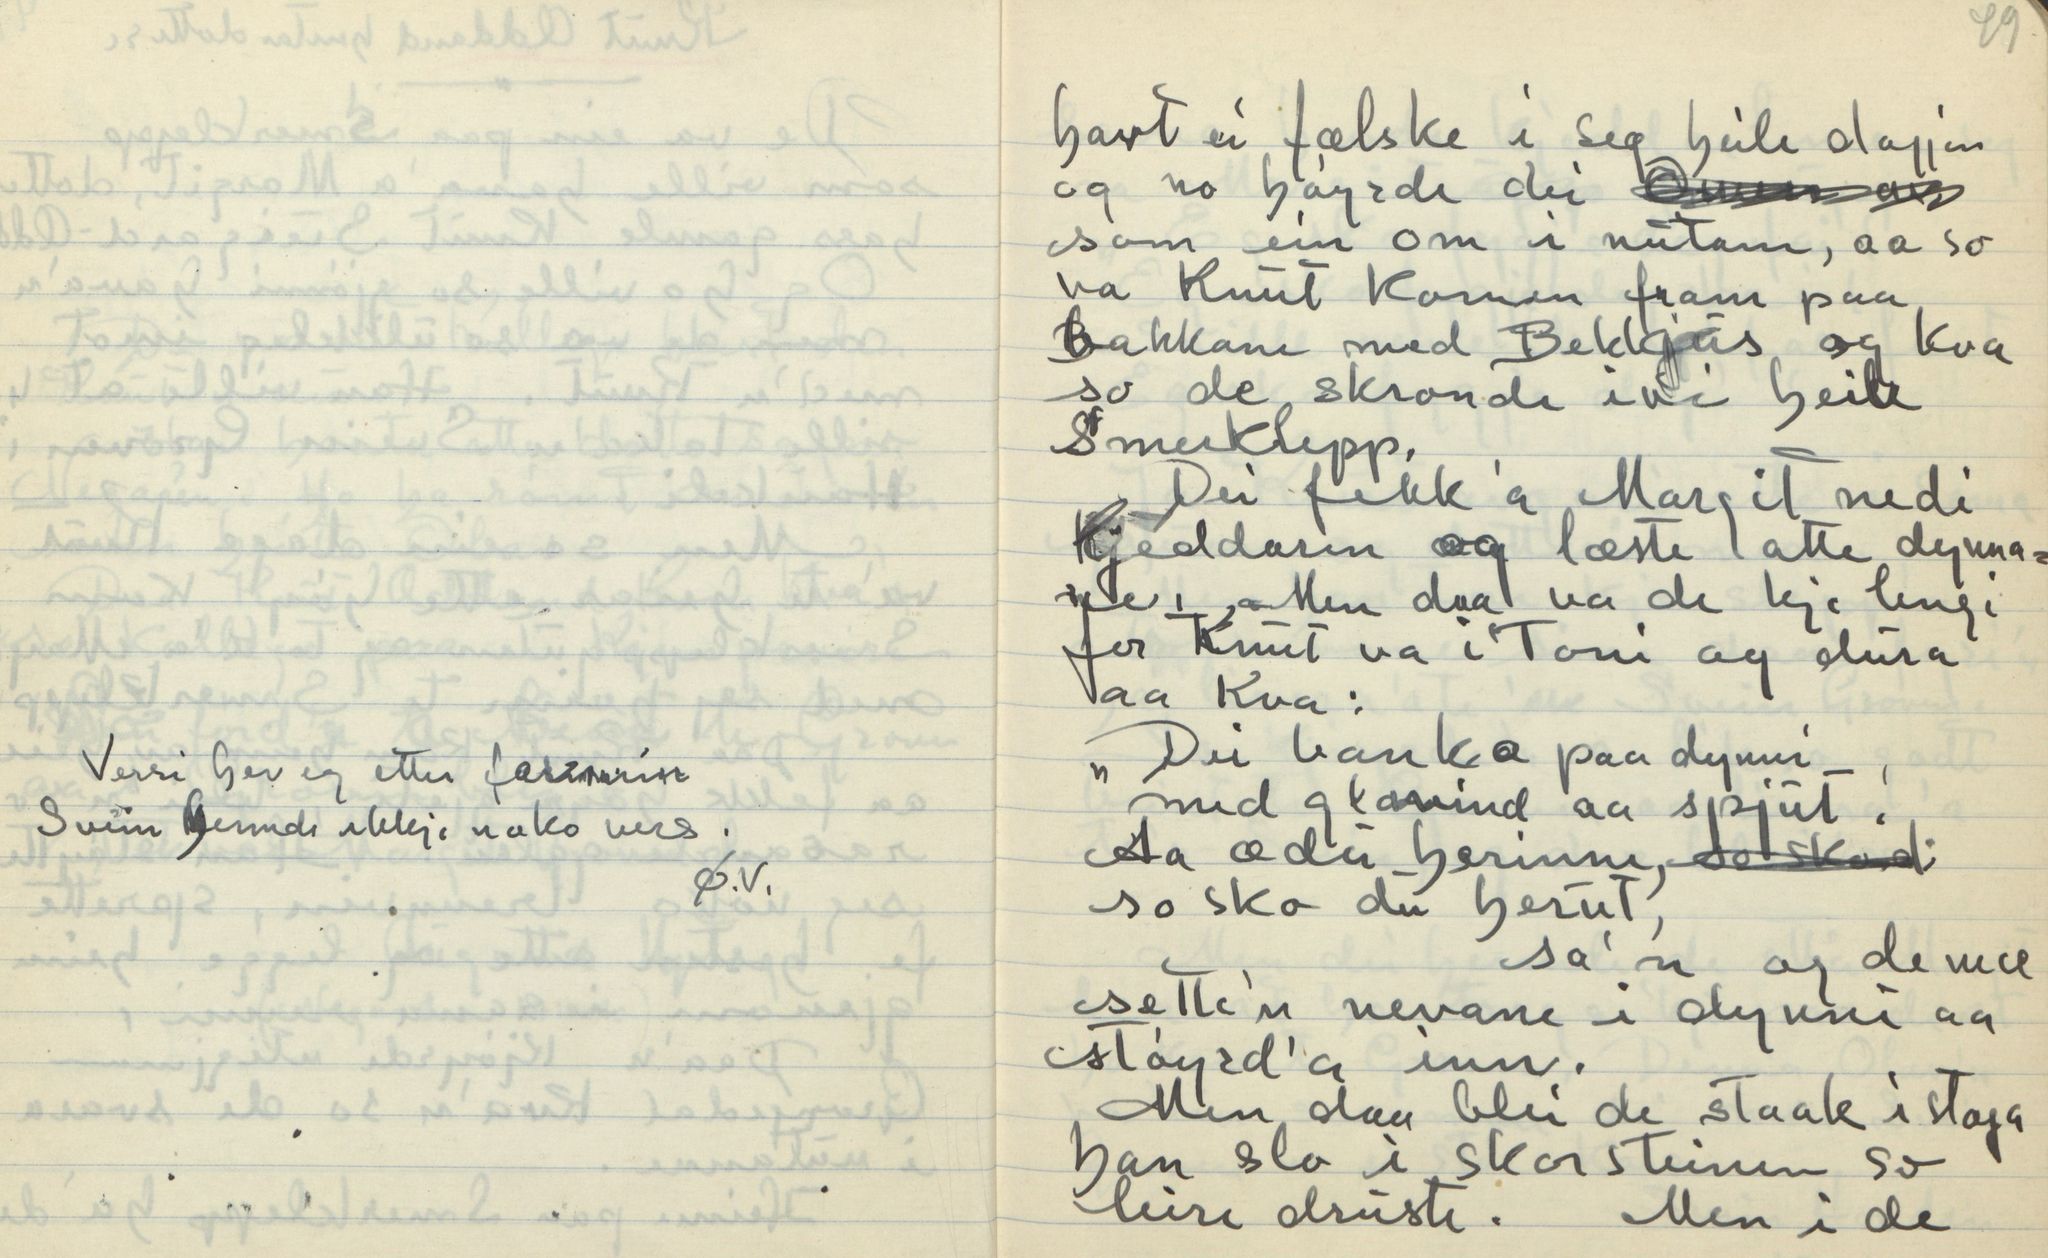 Versi hev eg etter farmorin
Svein kunnde ikkje noko vers.
Ø.V.
49.
havt ei fælske i seg heile dagjin
og no høyrde dei
som ein om i nutam, aa so
va Knut komen fram paa
bakkane med Bekkjus og kva
so de skronde ivi heile
Smerklepp.
Dei fekk'a Margit nedi
kjeddarin og læste atte dynna=
ne, Men daa va de kje lengi
for Knut va i Toni og dura
aa kva:
„Dei banka paa dynni,
med glavind aa spjut.
Aa ædu herinne, so sko d
so sko du herut,
sa'n og de mæ
sette'n nevane i dynni aa
støyrd'a inn.
Men daa blei de staak i stoga
han slo i skorsteinen so
leire druste. Men i de